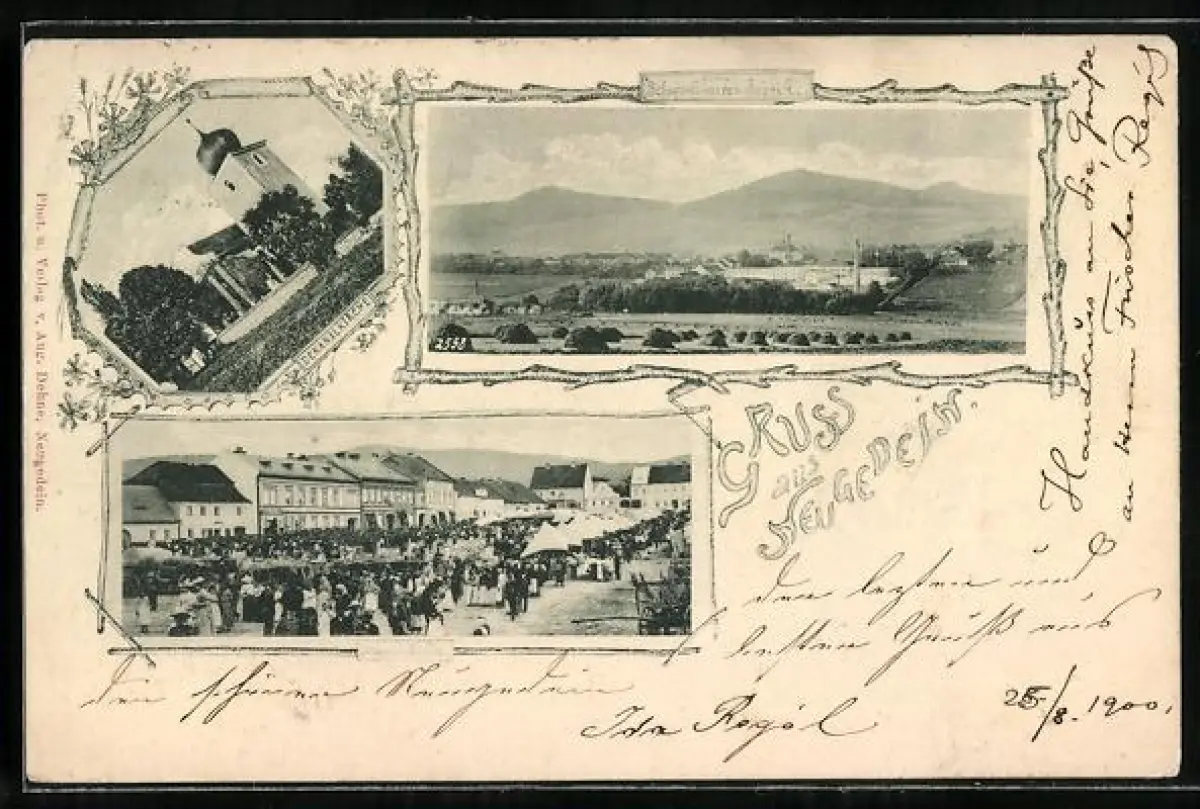 Phot. u. Verlag v. Aug. Dehne, Neugedein.
2538
GRUSS
aus
NEUGEDEIN.
Handkuss an die Grüße
an Herrn Fischer Regál
den letzten und
besten Gruß aus
den schönen Neugedein
Ida Regál
25/8. 1900.